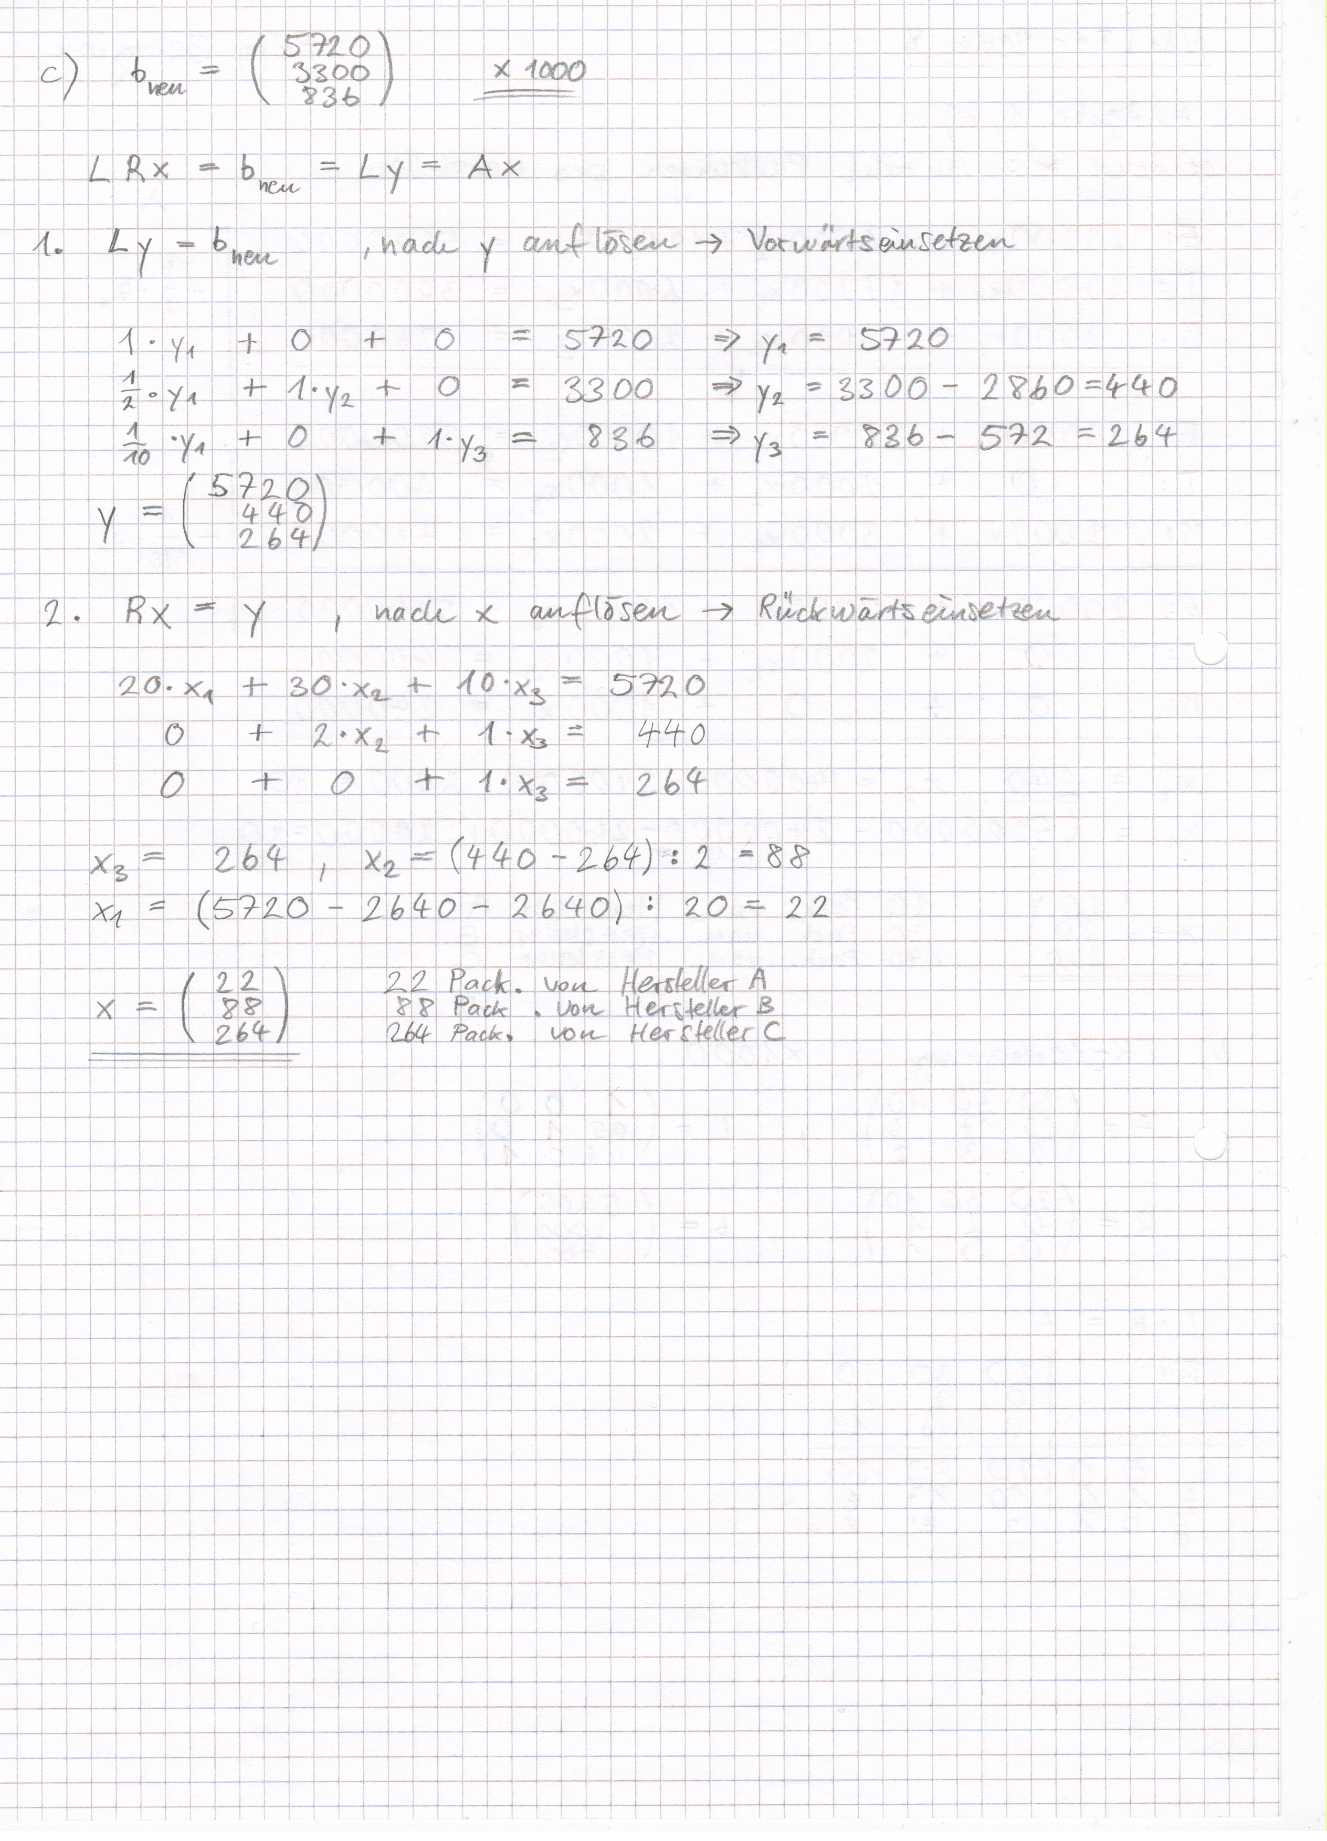 c) b_neu = (5720 3300 836) x 1000
L R x = b_neu = L y = A x
1. L y = b_neu , nach y auflösen → Vorwärtseinsetzen
1 · y₁ + 0 + 0 = 5720 ⇒ y₁ = 5720
1/2 · y₁ + 1 · y₂ + 0 = 3300 ⇒ y₂ = 3300 - 2860 = 440
1/10 · y₁ + 0 + 1 · y₃ = 836 ⇒ y₃ = 836 - 572 = 264
y = (5720 440 264)
2. R x = y , nach x auflösen → Rückwärtseinsetzen
20 · x₁ + 30 · x₂ + 10 · x₃ = 5720
0 + 2 · x₂ + 1 · x₃ = 440
0 + 0 + 1 · x₃ = 264
x₃ = 264 , x₂ = (440 - 264) : 2 = 88
x₁ = (5720 - 2640 - 2640) : 20 = 22
x = (22 88 264)
22 Pack. von Hersteller A
88 Pack. von Hersteller B
264 Pack. von Hersteller C